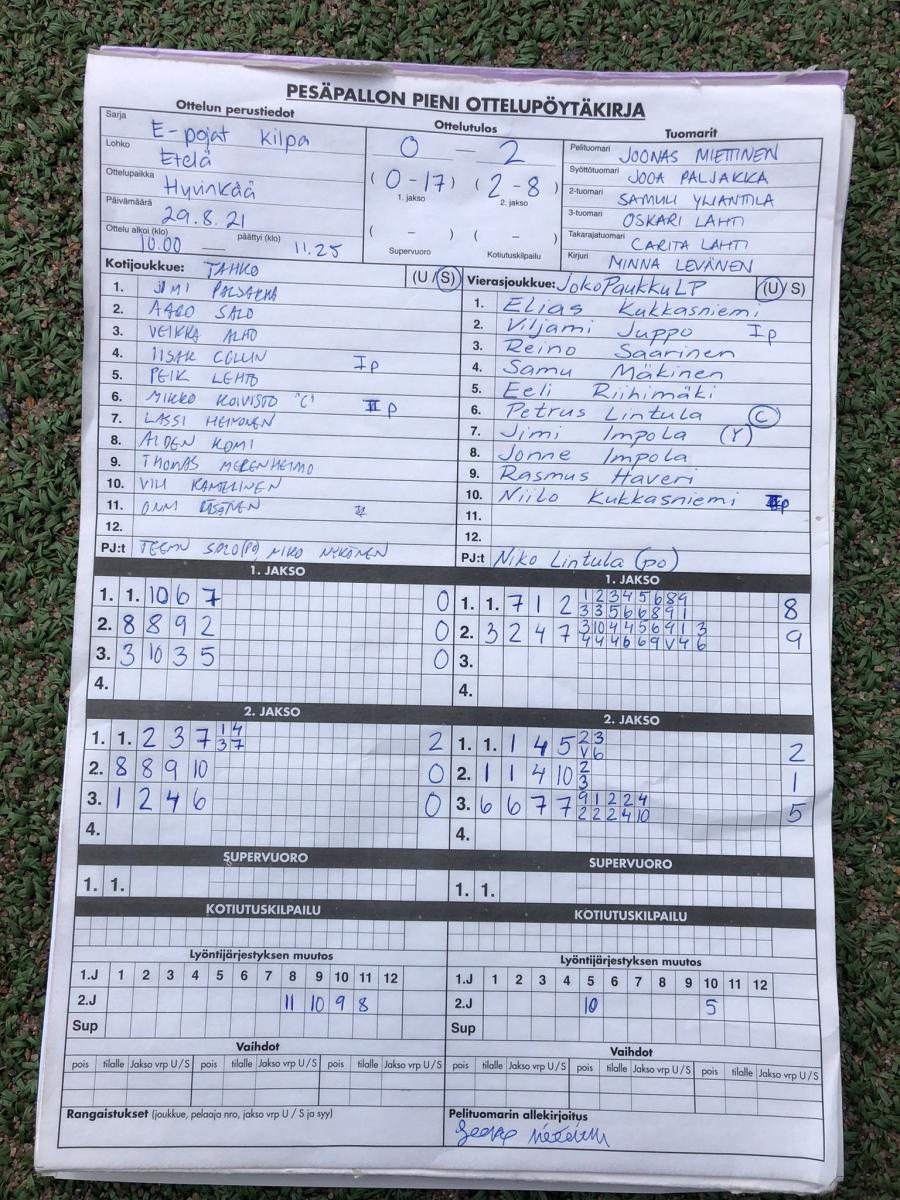 PESÄPALLON PIENI OTTELUPÖYTÄKIRJA
Ottelun perustiedot
Sarja E-pojat kilpa
Lohko Etelä
Ottelupaikka Hyvinkää
Päivämäärä 29.8.21
Ottelu alkoi (klo) 10.00 päättyi (klo) 11.25
Ottelutulos
0 — 2
(0-17) (2-8)
1. jakso 2. jakso
( - ) ( - )
Supervuoro Kotiutuskilpailu
Tuomarit
Pelituomari JOONAS MIETTINEN
Syöttötuomari JOOA PALJAKKA
2-tuomari SAMULI YLIANTTILA
3-tuomari OSKARI LAHTI
Takarajatuomari CARITA LAHTI
Kirjuri MINNA LEVÄNEN
Kotijoukkue: TAHKO (U/S)
1. JIMI PALJAKKA
2. AARO SALO
3. VEIKKA ALHO
4. IISAK COLLIN I p
5. PEIK LEHTO
6. MIKKO KOIVISTO "C" II p
7. LASSI HEIMONEN
8. ALDEN KOMI
9. THOMAS MERENHEIMO
10. VILI KANTELINEN
11. ONNI
12.
PJ:t TEEMU SALO(PO), MIKO NYKÄNEN
Vierasjoukkue: JokoPaukkuLP (U/S)
1. Elias Kukkasniemi
2. Viljami Juppo I p
3. Reino Saarinen
4. Samu Mäkinen
5. Eeli Riihimäki
6. Petrus Lintula C
7. Jimi Impola (Y)
8. Jonne Impola
9. Rasmus Haveri
10. Niilo Kukkasniemi II p
11.
12.
PJ:t Niko Lintula (po)
1. JAKSO
1. 1. 10 6 7 0
2. 8 8 9 2 0
3. 3 10 3 5 0
4.
1. JAKSO
1. 1. 7 1 2 1 2 3 4 5 6 8 9 8
3 3 5 6 6 8 9 1
2. 3 2 4 7 3 10 4 4 5 6 9 1 3 9
4 4 4 6 6 9 V 4 6
3.
4.
2. JAKSO
1. 1. 2 3 7 1 4 2
3 7
2. 8 8 9 10 0
3. 1 2 4 6 0
4.
2. JAKSO
1. 1. 1 4 5 2 3 2
V 6
2. 1 1 4 10 2 1
3
3. 6 6 7 7 9 1 2 2 4 5
2 2 2 4 10
4.
SUPERVUORO
1. 1.
SUPERVUORO
1. 1.
KOTIUTUSKILPAILU
KOTIUTUSKILPAILU
Lyöntijärjestyksen muutos
1.J 1 2 3 4 5 6 7 8 9 10 11 12
2.J 11 10 9 8
Sup
Lyöntijärjestyksen muutos
1.J 1 2 3 4 5 6 7 8 9 10 11 12
2.J 10 5
Sup
Vaihdot
pois tilalle Jakso vrp U/S pois tilalle Jakso vrp U/S pois tilalle Jakso vrp U/S
Vaihdot
pois tilalle Jakso vrp U/S pois tilalle Jakso vrp U/S pois tilalle Jakso vrp U/S
Rangaistukset (joukkue, pelaaja nro, jakso vrp U/S ja syy)
Pelituomarin allekirjoitus